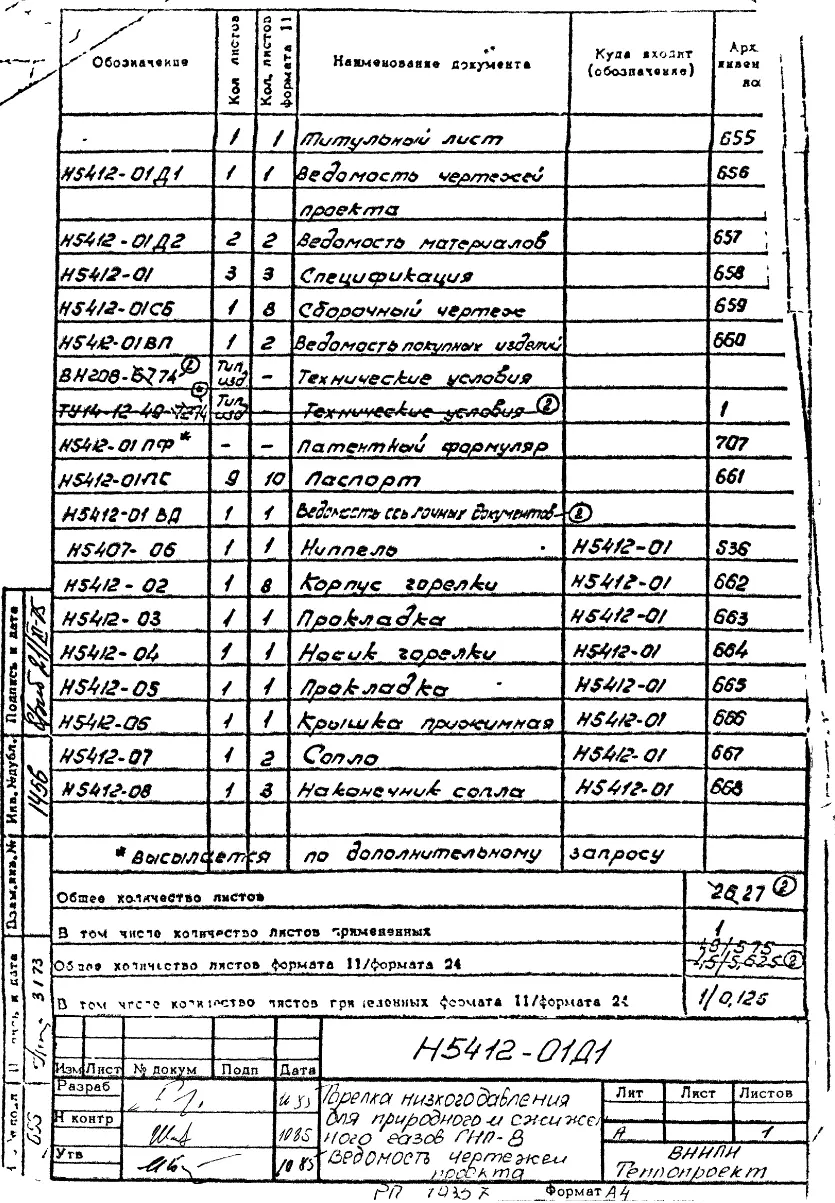 Обозначение Кол листов Кол. листов формата 11 Наименование документа Куда входит (обозначение) Арх.
1 1 Титульный лист 655
Н5412-01Д1 1 1 Ведомость чертежей 656
проекта
Н5412-01Д2 2 2 Ведомость материалов 657
Н5412-01 3 3 Спецификация 658
Н5412-01СБ 1 8 Сборочный чертеж 659
Н5412-01ВП 1 2 Ведомость покупных изделий 660
Тип. изд – Технические условия
Тип. изд – Технические условия ② 1
Н5412-01ПФ* – – Патентный формуляр 707
Н5412-01ПС 9 10 Паспорт 661
Н5412-01 ВД 1 1 Ведомость ссылочных документов ②
Н5407-06 1 1 Ниппель Н5412-01 536
Н5412-02 1 8 Корпус горелки Н5412-01 662
Н5412-03 1 1 Прокладка Н5412-01 663
Н5412-04 1 1 Носик горелки Н5412-01 664
Н5412-05 1 1 Прокладка Н5412-01 665
Н5412-06 1 1 Крышка прижимная Н5412-01 666
Н5412-07 1 2 Сопло Н5412-01 667
Н5412-08 1 3 Наконечник сопла Н5412-01 668
*Высылается по дополнительному запросу
Общее количество листов 26 27 ②
В том числе количество листов примененных 1
Общее количество листов формата 11/формата 24
В том числе количество листов примененных формата 11/формата 24 1/0,125
Подпись и дата
Инв.№дубл.
1456
Взам.инв.№
655
Н5412-01Д1
Изм Лист № докум Подп Дата
Разраб
Н контр 10 85
Утв 10 85
Горелка низкого давления
для природного и сжижен
ного газов ГНП-8
Ведомость чертежей
проекта
Лит Лист Листов
А 1
ВНИПИ
Теплопроект
Формат А4